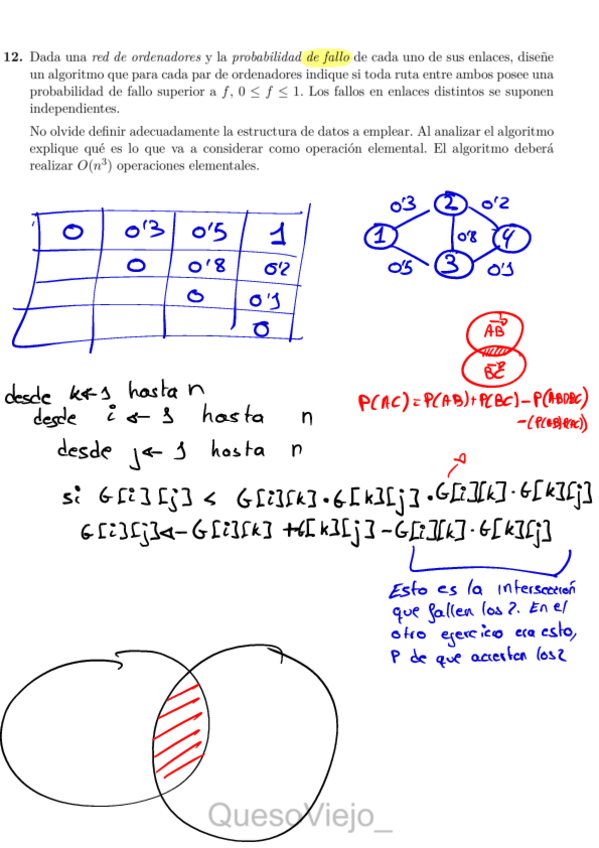 12. Dada una red de ordenadores y la probabilidad de fallo de cada uno de sus enlaces, diseñe
un algoritmo que para cada par de ordenadores indique si toda ruta entre ambos posee una
probabilidad de fallo superior a f, 0 ≤ f ≤ 1. Los fallos en enlaces distintos se suponen
independientes.
No olvide definir adecuadamente la estructura de datos a emplear. Al analizar el algoritmo
explique qué es lo que va a considerar como operación elemental. El algoritmo deberá
realizar O(n³) operaciones elementales.
0 0'3 0'5 1
0 0'8 0'2
0 0'1
0
0'3 2 0'2
1 0'8 4
0'5 3 0'1
AB
BC
P(AC) = P(AB)+P(BC)-P(ABDBC)
desde k←1 hasta n
desde i ← 1 hasta n
desde j← 1 hasta n
si G[i][j] < G[i][k] · G[k][j] · G[i][k] · G[k][j]
G[i][j]←G[i][k] + G[k][j] - G[i][k] · G[k][j]
Esto es la intersección
que fallen los 2. En el
otro ejercicio era esto,
P de que aciertan los 2
QuesoViejo_